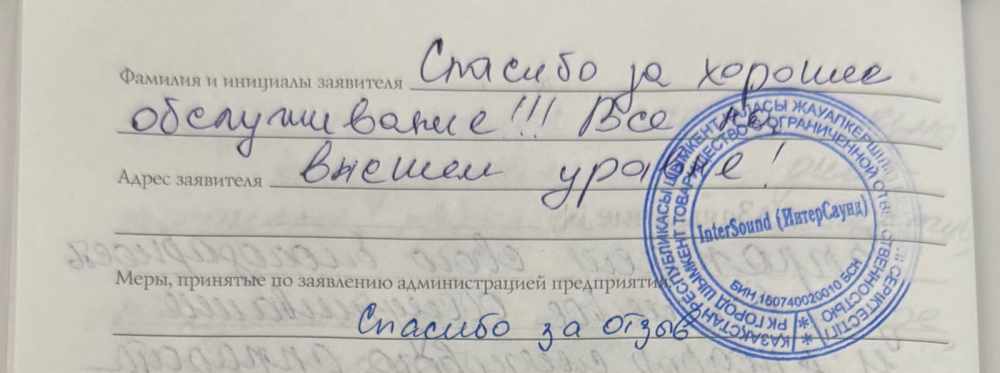 Фамилия и инициалы заявителя Спасибо за хорошее
обслуживание!!! Все на
Адрес заявителя высшем уровне!
Меры, принятые по заявлению администрацией предприятия
Спасибо за отзыв
ҚАЗАҚСТАН РЕСПУБЛИКАСЫ ШЫМКЕНТ ҚАЛАСЫ ЖАУАПКЕРШІЛІГІ СЕРІКТЕСТІГІ
РК ГОРОД ШЫМКЕНТ ТОВАРИЩЕСТВО С ОГРАНИЧЕННОЙ ОТВЕТСТВЕННОСТЬЮ
InterSound (ИнтерСаунд)
БИН 160740020010 БСН